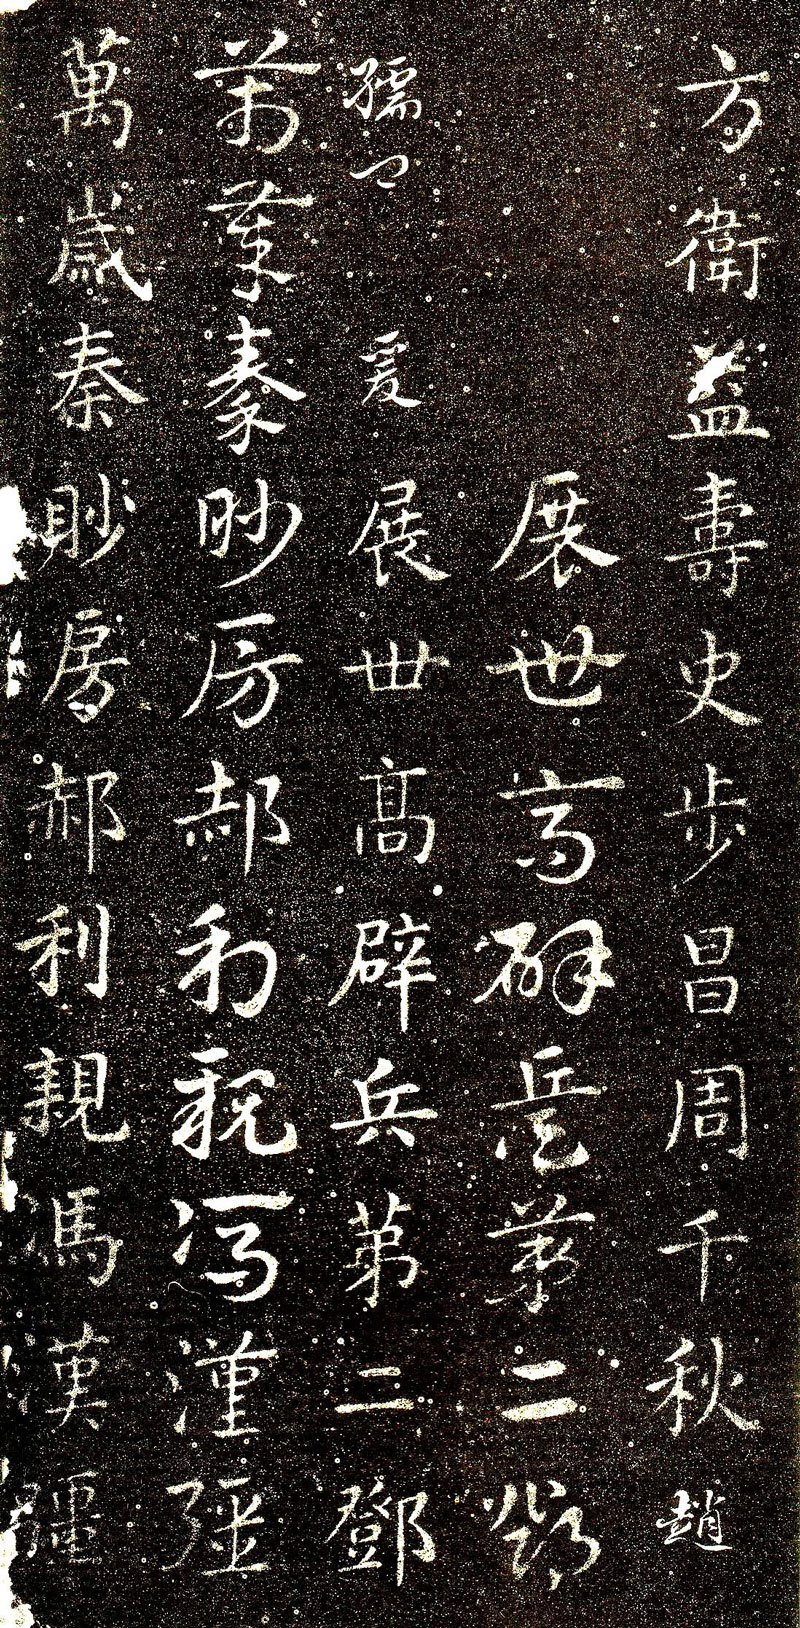 方衛益壽史步昌周千秋趙
展世高辟兵第二鄧
孺 爰展世高辟兵第二鄧
萬歲秦眇房郝利親馮漢彊
萬歲秦眇房郝利親馮漢彊